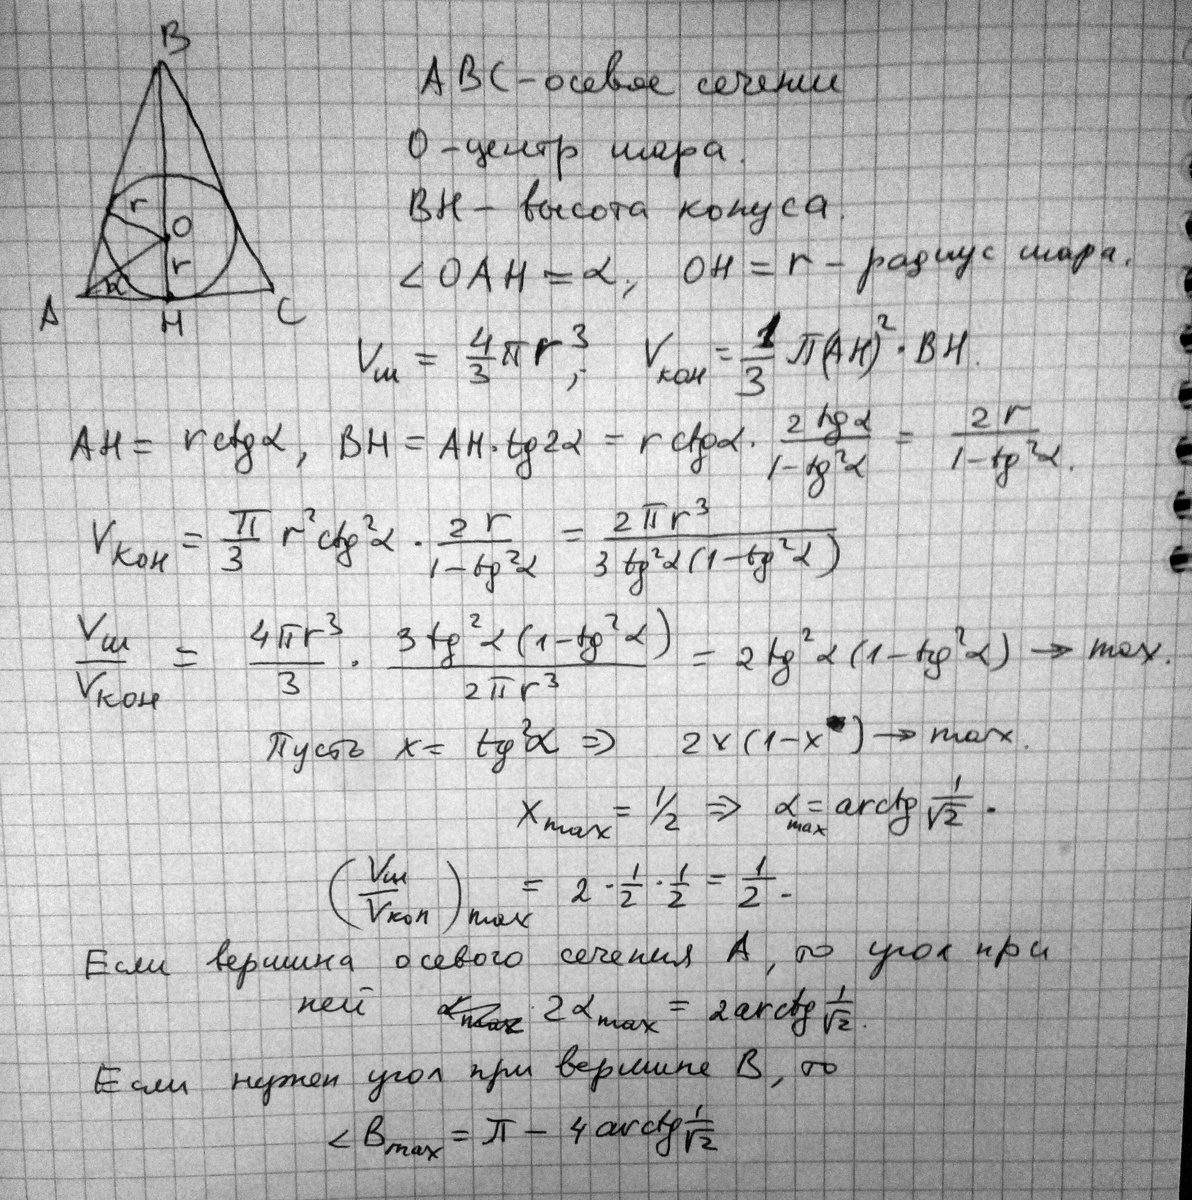 B
r
O
r
α
A
H
C
ABC - осевое сечение
O - центр шара.
BH - высота конуса.
∠OAH = α, OH = r - радиус шара.
Vш = 4/3 πr³; Vкон = 1/3 π(AH)² · BH.
AH = r ctgα, BH = AH · tg2α = r ctgα · 2tgα/(1-tg²α) = 2r/(1-tg²α).
Vкон = π/3 r² ctg²α · 2r/(1-tg²α) = 2πr³/(3tg²α(1-tg²α))
Vш/Vкон = 4πr³/3 · 3tg²α(1-tg²α)/(2πr³) = 2tg²α(1-tg²α) → max.
Пусть x = tg²α ⇒ 2x(1-x) → max.
x_max = 1/2 ⇒ α_max = arctg 1/√2.
(Vш/Vкон)_max = 2 · 1/2 · 1/2 = 1/2.
Если вершина осевого сечения A, то угол при
ней 2α_max = 2arctg 1/√2.
Если нужен угол при вершине B, то
∠B_max = π - 4arctg 1/√2